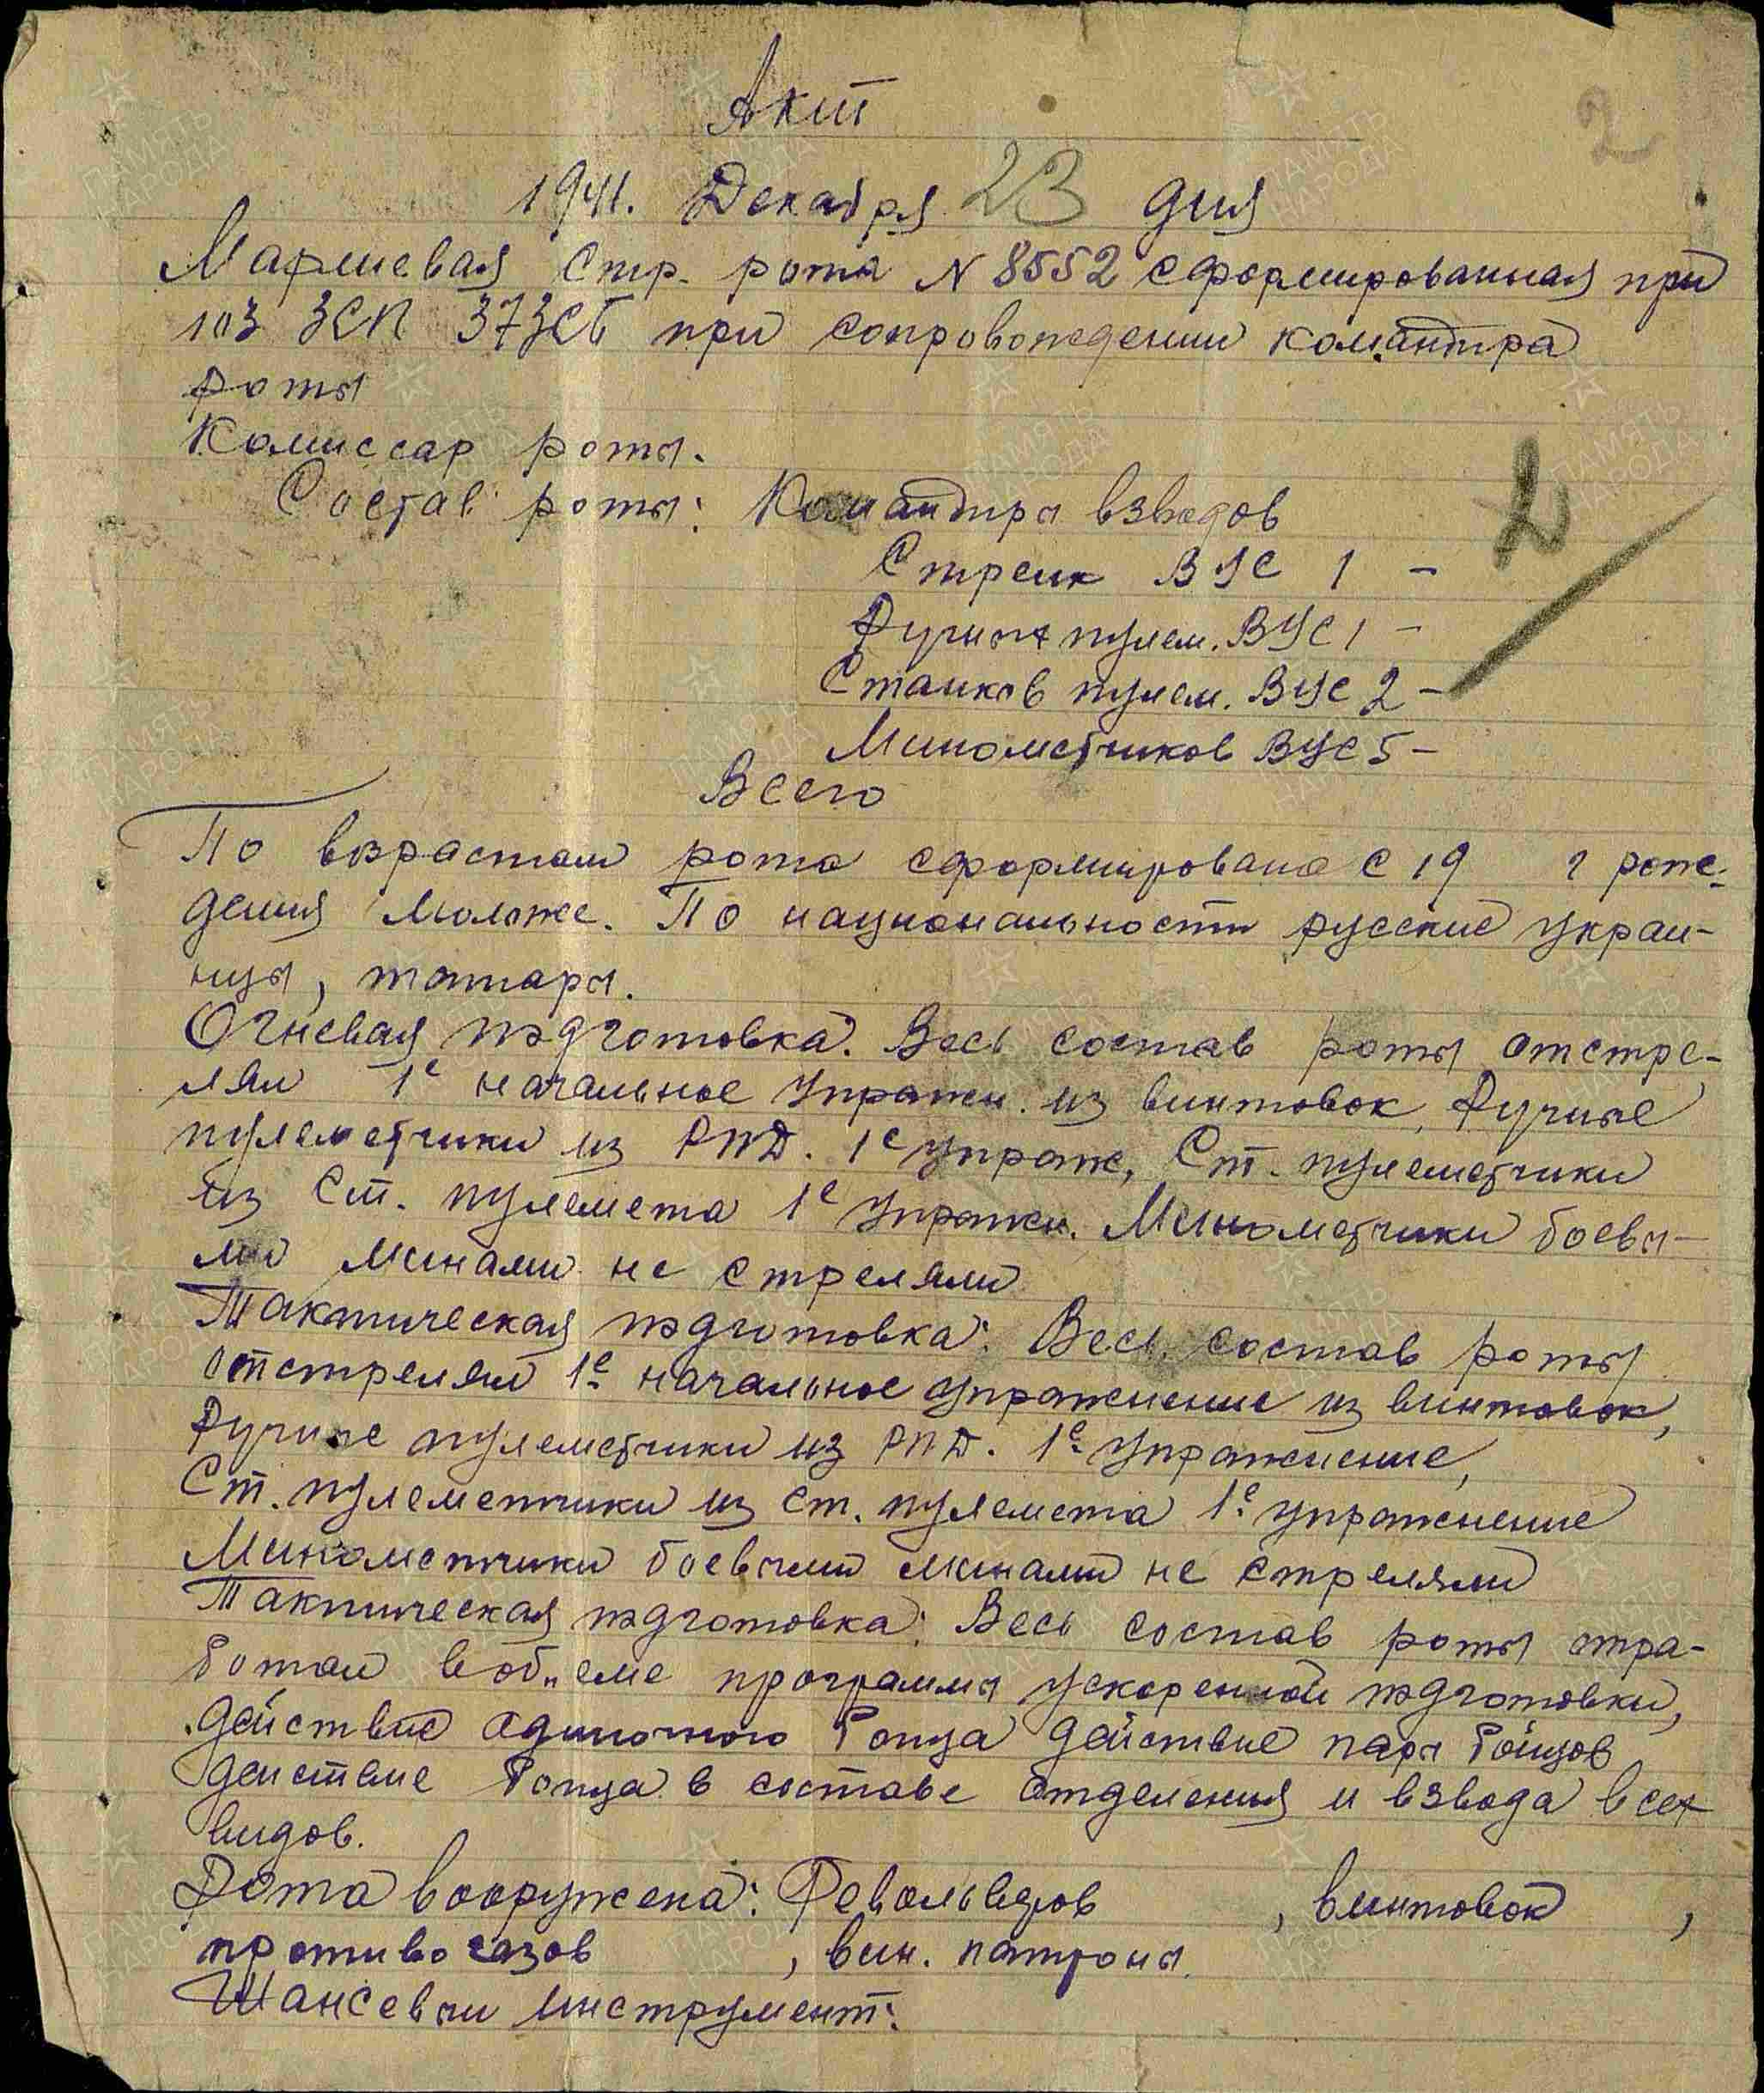 2
Акт
1941. Декабря 23 дня
Маршевая Стр. рота N 8552 сформированная при
103 ЗСП 37ЗСБ при сопровождении командира
роты
Комиссар роты.
Состав роты: Командиры взводов
2
Стрелк ВУС 1 -
Ручных пулем. ВУС 1 -
Станков пулем. ВУС 2 -
Минометчиков ВУС 5 -
Всего
По возрастам рота сформирована с 19 г рож-
дения моложе. По национальности русские украи-
нцы, татары.
Огневая подготовка. Весь состав роты отстре-
лял 1е начальное упражн. из винтовок, Ручные
пулеметчики из РПД. 1е упраж, Ст. пулеметчики
из Ст. пулемета 1е упражн. Минометчики боевы-
ми минами не стреляли
Тактическая подготовка: Весь состав роты
отстрелял 1е начальное упражнение из винтовок,
Ручные пулеметчики из РПД. 1е упражнение,
Ст. пулеметчики из ст. пулемета 1е упражнение
Минометчики боевыми минами не стреляли
Тактическая подготовка: Весь состав роты отра-
ботал в об"еме программы ускоренной подготовки,
действие одиночного бойца действие пары бойцов
действие бойца в составе отделения и взвода всех
видов.
Рота вооружена: Револьверов , винтовок ,
противогазов , вин. патроны.
Шансевый инструмент:
ПАМЯТЬ НАРОДА